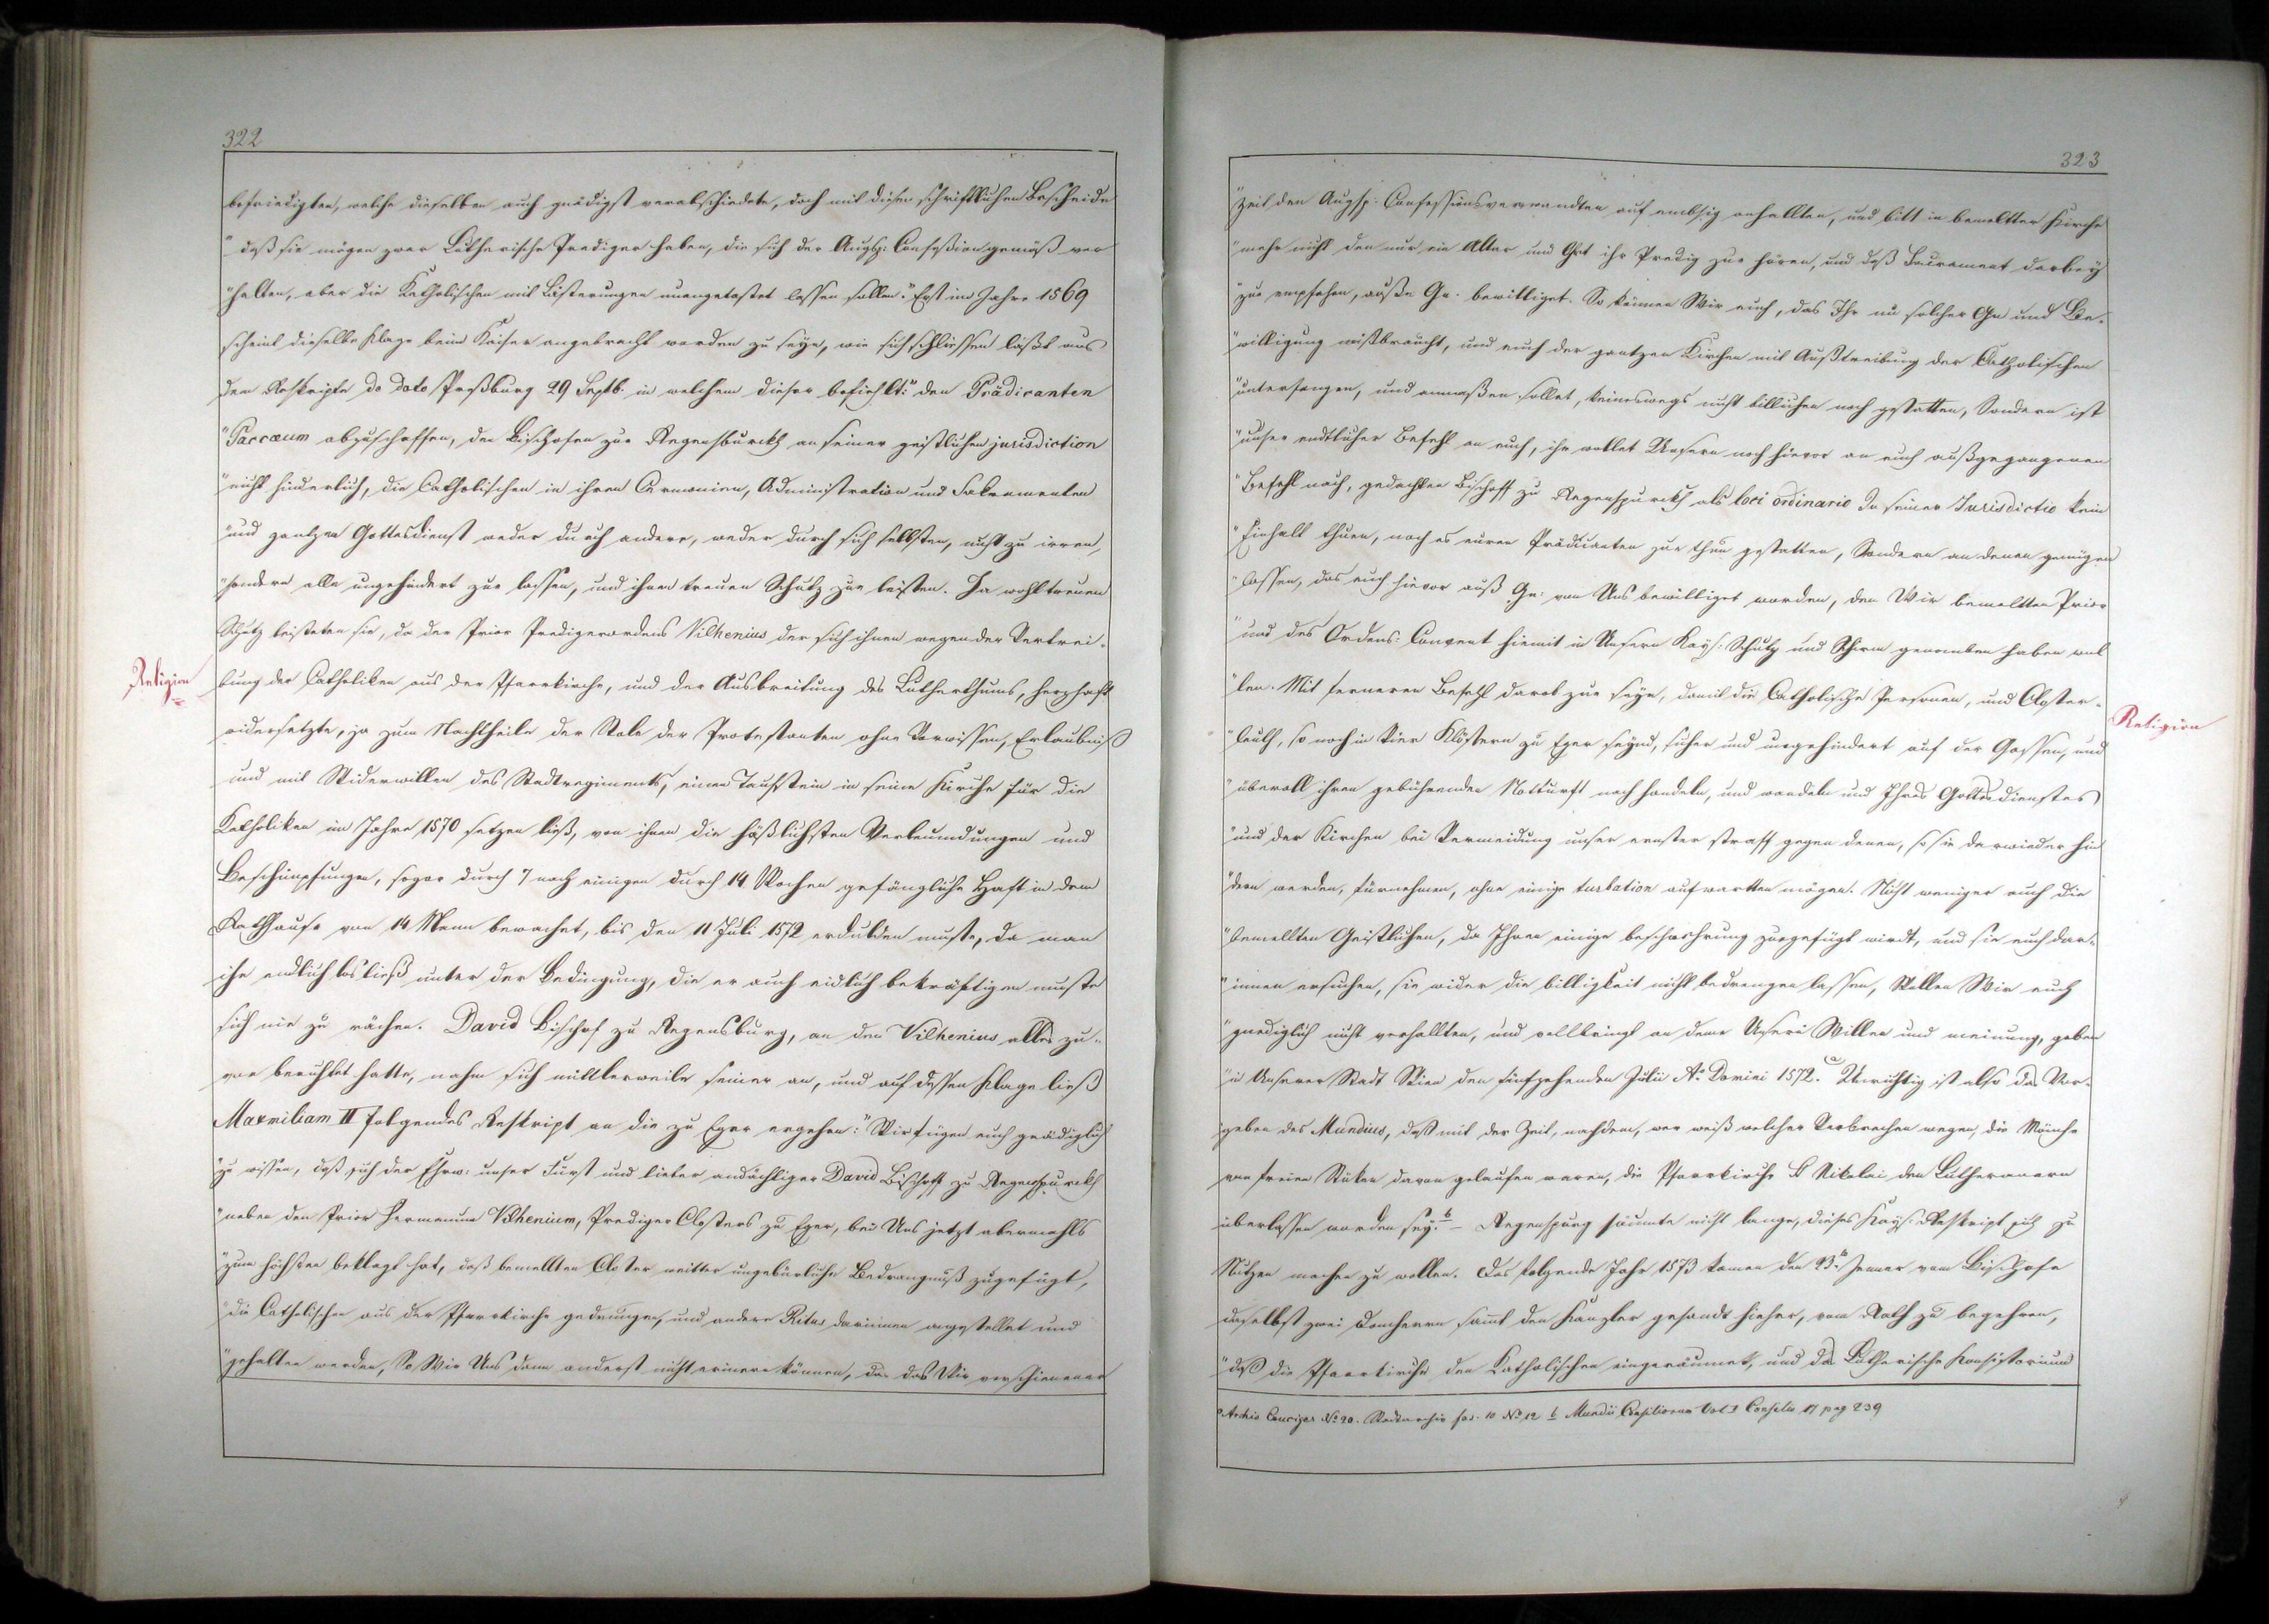 322
befriedigten, welche dieselben auch gnädigst verabschiedete, doch mit diesem schriftlichen Bescheide
"daß sie mögen zwar Lutherische Prediger haben, die sich der Augsp: Confeßion gemäß ver
"halten, aber die Katholischen mit Lästerungen unangetastet lassen sollen." Erst im Jahre 1569
scheint dieselbe Klage beim Kaiser angebracht worden zu seyn, wie sich schließen läßt aus
dem Reskripte de dato Preßburg 29 Septb. in welchem dieser befiehlt: "den Prädicanten
"Paccaeum abzuschaffen, den Bischofen zur Regensburckh an seiner geistlichen jurisdiction
"nicht hinderlich, die Catholischen in ihren Cermonien, Administration und Sakramenten
"und gantzen Gottesdienst weder durch andere, weder durch sich selbsten, nicht zu irren,
"sondern alle ungehindert zue lassen, und ihnen treuen Schutz zue leisten. Ja wohl treuen
Schutz leisteten sie, da der Prior Predigerordens Vilhenius der sich ihnen wegen der Vertrei-
Religion
bung der Catholiken aus der Pfarrkirche, und der Ausbreitung des Lutherthums, herzhaft
widersetzte, ja zum Nachtheile der Stole der Protestanten ohne Vorwissen, Erlaubniß
und mit Widerwillen des Stadtregiments, einen Taufstein in seine Kirche für die
Katholiken im Jahre 1570 setzen ließ, von ihnen die häßlichsten Verleumdungen und
Beschimpfungen, sogar durch 7 nach einigen durch 14 Wochen gefängliche Haft in dem
Rathhause von 14 Mann bewachet, bis den 11 Juli 1572 erdulden mußte, da man
ihn endlich losließ unter der Bedingung, die er auch eidlich bekräftigen mußte
sich nie zu rächen. David Bischof zu Regensburg, an den Vilhenius alles zu-
vor berichtet hatte, nahm sich mittlerweile seiner an, und auf dessen Klage ließ
Maxmiliam II folgendes Reskript an die zu Eger ergehen: "Wir fügen euch gnädiglich
"zu wissen, daß sich der Ehrw: unser Fürst und lieber andächtiger David Bischoff zu Regenspurckh
"neben den Prior Hermanum Vilhenium, Prediger Closters zu Eger, bei Uns jetzt abermahls
"zum höchsten beklagt hat, daß bemellten Closter weitter ungebürliche Bedrangnuß zugefügt,
"die Catholischen aus der Pfarrkirche gedrungen, und andere Ritus darinnen angestellet und
"gehalten werden, So Wir Uns dann anderst nicht erinnern können, da das Wir verschienener
323
"Zeit den Augsp: Confessionsverwandten auf embsig anhallten, und bitt in bemeltter Kirche
"mehr nicht den nur ein Altar und Ort ihr Predig zue hören, und daß Sacrament darbey
"zue empfahen, außer Gn. bewilliget. So können Wir euch, das Ihr nu solcher Gn und Be-
"willigung mißbraucht, und euch der gantzen Kirchen mit Außtreibung der Catholischen
"unterfangen, und anmaßen sollet, keineswegs nicht billichen noch gestatten, Sondern ist
"unser endtlicher Befehl an euch, ihr wollet Unsern noch hievor an euch außgegangenen
"Befehl nach, gedachten Bischoff zu Regenspurckh als loci ordinario In seiner Jurisdictio kein
"Einhalt thuen, noch es euren Prädicanten zue thun gestatten, Sondern an denen genügen
"lassen, das euch hievor auß Gn: von Uns bewilliget worden, den Wir bemeltten Prior
"und des Ordens: Convent hiemit in Unsern Kays: Schutz und Schirm genomben haben wol
"len. Mit ferneren Befehl darob zue seyn, damit die Catholische Personen, und Closter-
Religion
"leuth, so noch in Vier Klöstern zu Eger seynd, sicher und ungehindert auf der Gassen, und
"überall ihren gebührenden Notturft nach handeln, und wandeln und Ihres Gottesdienstes
"und der Kirchen bei Vermeidung unser ernster straff gegen denen, so sie darwieder hin
"dern werden, fürnehmen, ohne einige turbation aufwartten mögen. Nicht weniger auch die
"bemellten Geistlichen, da Ihnen einige beschwehrung zuegefügt wirdt, und sie euch dar-
"innen ersuchen, sie wider die billigkeit nicht bedrengen lassen, Wollen Wir euch
"gnediglich nicht verhallten, und vollbringt an deme Unsern Willen und meinung, geben
"in Unserer Stadt Wien den fünfzehenden Julii Ao Domini 1572. a Unrichtig ist also das Vor-
"geben des Mundius, daß mit der Zeit, nachdem, wer weiß welcher Verbrechen wegen, die Mönche
von freien Stüken davon gelaufen waren, die Pfarrkirche St Nikolai den Lutheranern
überlassen worden sey. b – Regenspurg säumte nicht lange, dieses Kays: Reskript sich zu
Nutzen machen zu wollen. Das folgende Jahr 1573 kamen den 23.t Jenner vom Bischofe
daselbst zwei Domherrn samt den Kanzler gesandt hieher, vom Rath zu begehren,
"daß die Pfarrkirche den Katholischen eingeräumet, und das Lutherische Konsistorium
a Archiv Cruciger No 20. Stadtarchiv fas. 10 No 12 b Mundii Consiliorum Vol I Consilio 17 pag 239